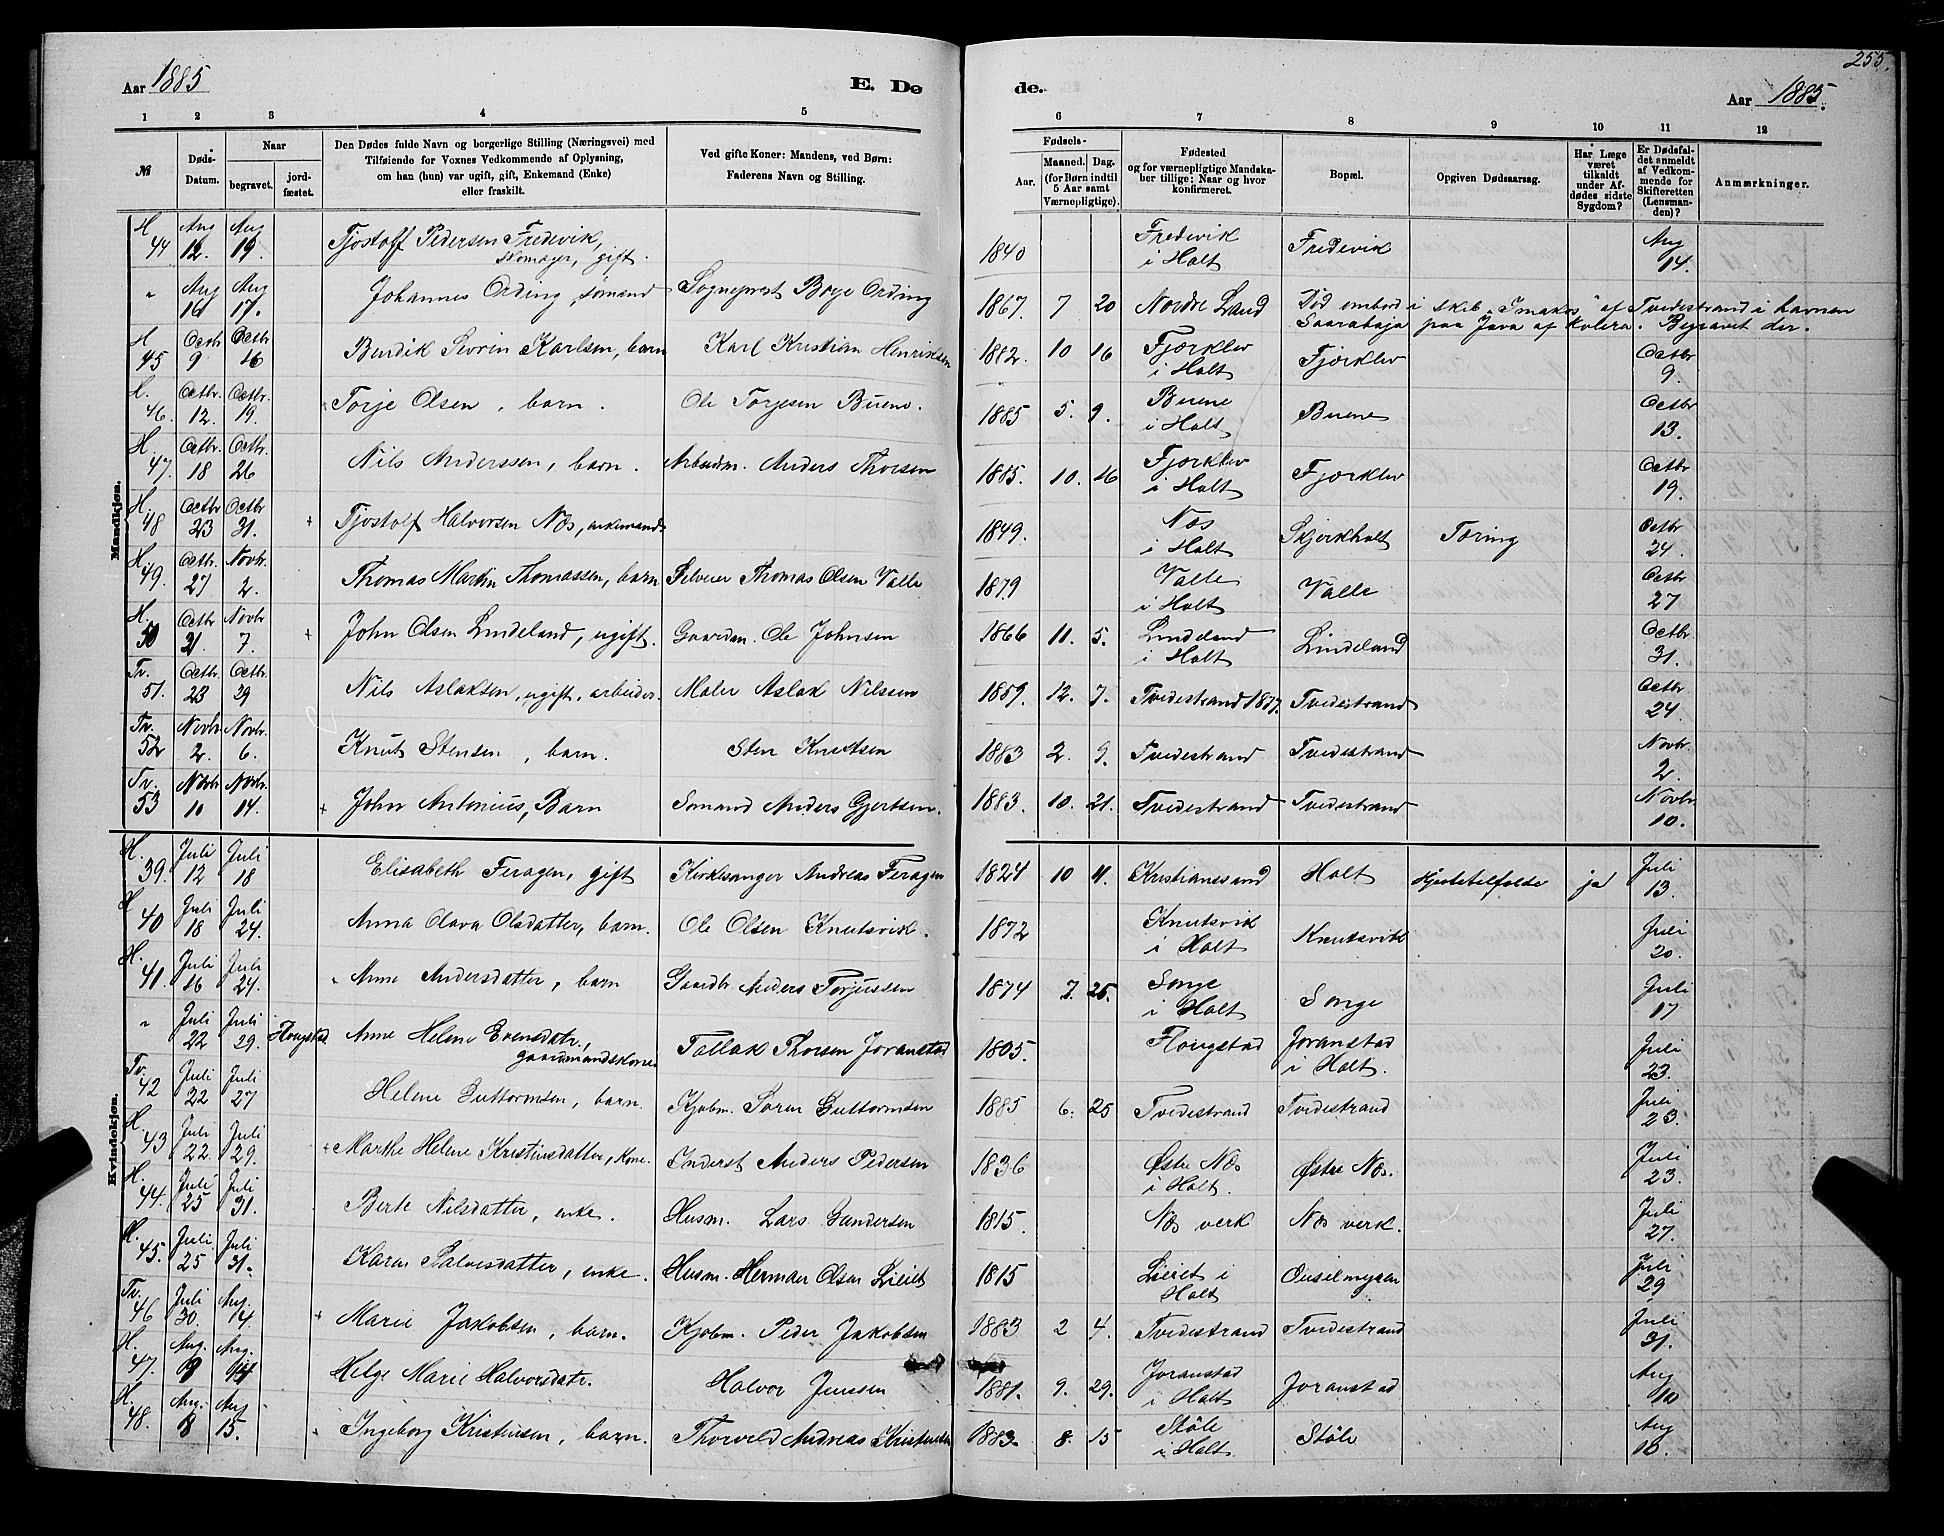 255.
Aar 1885 E. Døde. Aar 1885.
1 2 3 4 5 6 7 8 9 10 11 12
№ Døds-Datum. Naar begravet. jordfæstet. Den Dødes fulde Navn og borgerlige Stilling (Næringsvei) med Tilføiende for Voxnes Vedkommende af Oplysning, om han (hun) var ugift, gift, Enkemand (Enke) eller fraskilt. Ved gifte Koner: Mandens, ved Børn: Faderens Navn og Stilling. Fødsels- Aar. Maaned. Dag. (for Børn indtil 5 Aar samt Værnepligtige). Fødested og for værnepligtige Mandskaber tillige: Naar og hvor konfirmeret. Bopæl. Opgiven Dødsaarsag. Har Læge været tilkaldt under Afdødes sidste Sygdom? Er Dødsfaldet anmeldt af Vedkommende for Skifteretten (Lensmanden)? Anmærkninger.
Mandkjøn.
H. 44 Aug 12. Aug 19. Tjostolf Pedersen Fredevik, skomager, gift. 1840 Fredevik i Holt Fredevik Aug 14.
" Aug 16 Aug 17. Johannes Ording, sømand Sogneprest Børje Ording 1867. 7 20 Nordre Land Død ombord i skib "Smakos" af Tvedestrand i havnen Saarabaja paa Java af Kolera. Begravet der.
H 45 Octbr 9 Octbr 16 Bendik Severin Karlsen, barn Karl Kristian Henriksen 1882. 10 16 Fjørklev i Holt Fjørklev Octbr 9.
H. 46. Octbr. 12. Octbr. 19. Torje Olsen, barn. Ole Torjesen Buene. 1885 5. 9. Buene i Holt Buene Octbr 13.
H. 47. Octbr. 18 Octbr. 26 Nils Anderssen, barn. Arbeidm. Anders Thorsen 1885. 10. 16 Fjørklev i Holt Fjørklev Octbr 19.
H. 48 Octbr 23 Octbr 31. + Tjostolf Halvorsen Næs, enkemand 1849. Næs i Holt Skjerkholt Tæring Octbr 24.
H. 49. Octbr. 27 Novbr. 2. Thomas Martin Thomassen, barn Selveier Thomas Olsen Valle 1879 Valle i Holt Valle Octbr 27
H. 50 Octbr 31. Novbr 7. + John Olsen Lindeland, ugift. Gaardm. Ole Johnsen 1866 11. 5. Lindeland i Holt Lindeland Octbr 31.
Tv. 51. Octbr. 23 Octbr. 29 Nils Aslaksen, ugift, arbeider. Maler Aslak Nilssen 1859. 12. 7. Tvedestrand 1877. Tvedestrand Octbr 24.
Tv. 52 Novbr 2. Novbr. 6. Knut Stensen, barn. Sten Knudtsen 1883 2. 9. Tvedestrand Tvedestrand Novbr. 2.
Tv. 53 Novbr 10 Novbr. 14. + John Antonius, Barn Sømand Anders Gjertsen. 1883. 10. 21. Tvedestrand Tvedestrand Novbr. 10.
Kvindekjøn.
H. 39. Juli 12 Juli 18 Elisabeth Feragen, gift Kirkesanger Andreas Feragen 1824 10 11. Kristianssand Holt Hjertetilfælde ja Juli 13.
H 40 Juli 18 Juli 24. Anna Olava Olsdatter, barn. Ole Olsen Knutsvik. 1872 Knutsvik i Holt Knutsvik Juli 20.
H. 41. Juli 16 Juli 24. Anne Andersdatter, barn Gaardbr. Anders Torjussen 1874 7. 25. Songe i Holt Songe Juli 17
" Juli 22 Juli 29. Flougstad Anne Helene Evensdatr., gaardmandskone Tallak Thorsen Joranstad 1805. Flougstad Joranstad i Holt. Juli 23.
Tv. 42 Juli 22 Juli 27 Helene Guttormsen, barn. Kjøbm. Søren Guttormsen 1885 6. 25 Tvedestrand Tvedestrand Juli 23.
H. 43 Juli 22. Juli 29. + Marthe Helene Kristensdatter, kone. Inderst Anders Pedersen 1836 Østre Næs i Holt. Østre Næs. Juli 23.
H. 44. Juli 25 Juli 31. Berte Nilsdatter, enke. Husm. Lars Gundersen 1815. Næs verk Næs verk. Juli 27.
H. 45. Juli 25 Juli 31. Karen Salvesdatter, enke. Husm. Herman Olsen Lieiet 1815 Lieiet i Holt Juli 29
Tv. 46 Juli 30. Aug. 14 + Marie Jakobsen, barn. Kjøbm. Peder Jakobsen 1883 2 4. Tvedestrand Tvedestrand Juli 31.
H. 47. Aug. 8 Aug. 14 Helge Marie Halvorsdatr. Halvor Jenssen 1881. 9. 29. Joranstad i Holt Joranstad Aug 10
H. 48. Aug. 8 Aug 15. Ingeborg Kristensen, barn. Thorvald Andreas Kristensen 1883. 8. 15 Støle i Holt Støle Aug 10.